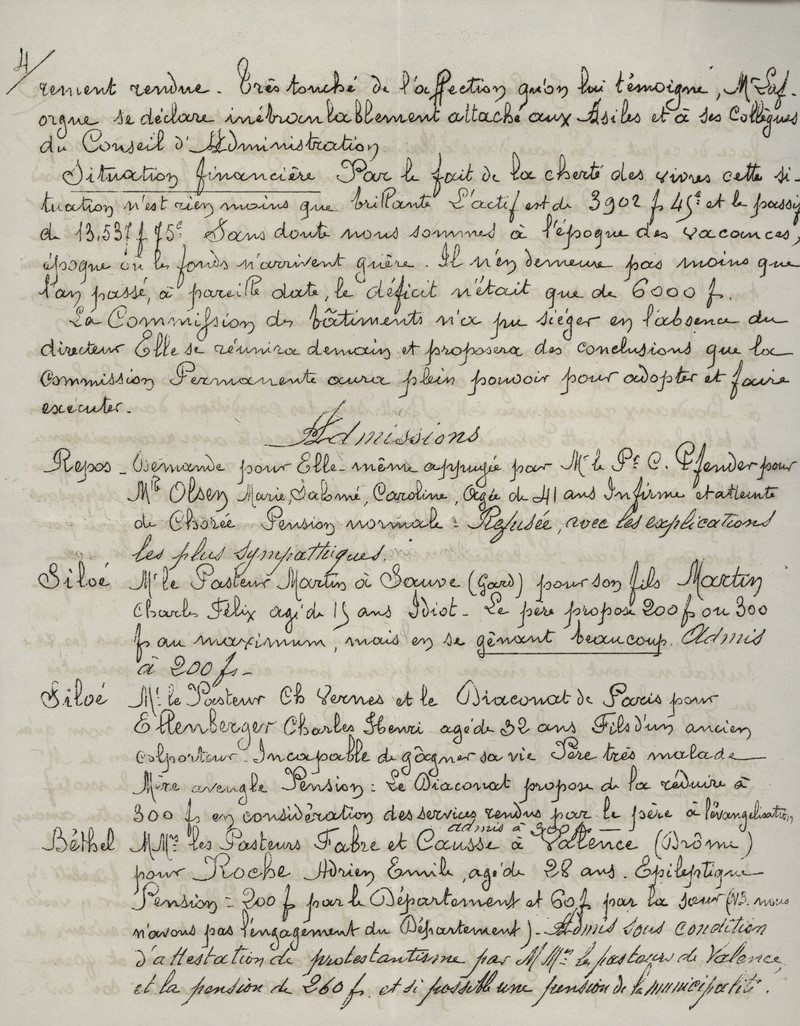 4/
rement rendue. Très touché de l'affection qu'on lui témoigne, Mr Laf-
orgue se déclare inébranlablement attaché aux Asiles et à ses Collègues
du Conseil d'Administration
Situation financière Par le fait de la cherté des vivres cette si-
tuation n'est rien moins que brillante L'actif est de 3902 f 45c et le passif
de 13.537 f 75c Sans doute nous sommes à l'époque des vacances,
époque où les fonds n'arrivent guère. Il n'en demeure pas moins que
l'an passé, à pareille date, le déficit n'était que de 6000 f.
La Commission des bâtiments n'a pu siéger en l'absence du
directeur Elle se réunira demain et proposera des conclusions que la
Commission Permanente aura plein pouvoir pour adopter et faire
executer.
Admissions
Repos - Demande pour Elle-même appuyée par Mr le Pr C. Pfender pour
Mlle Olsen Marie, Salomé, Caroline, agée de 41 ans Infirme et atteinte
de Chorée Pension normale : Refusée, avec les explications
les plus sympathiques.
Siloé Mr le Pasteur Martin à Sauve (Gard) pour son fils Martin
Charles Félix agé de 15 ans Idiot - Le père propose 200 f ou 300
f au maximum, mais en se gênant beaucoup. Admis
à 200 f -
Siloé Mr. le Pasteur Ch Vernes et le Diaconat de Paris pour
Ellenberger Charles Henri agé de 32 ans Fils d'un ancien
Colporteur - Incapable de gagner sa vie Père très malade
Mère aveugle Pension : Le Diaconat propose de la réduire à
300 f en considération des services rendus par le père à l'évangelisation
admis à 300 f -
Béthel MMrs les Pasteurs Fabre et Causse à Valence (Drôme)
pour Roche Adrien Emile, agé de 28 ans. Epileptique
Pension : 200 f par le Département et 60 f par la sœur (NB. nous
n'avons pas l'engagement du Département) - Admis sous condition
d'attestation de protestantisme par MMrs les pasteurs de Valence,
et la pension de 260 f. et si possible une pension de la municipalité.